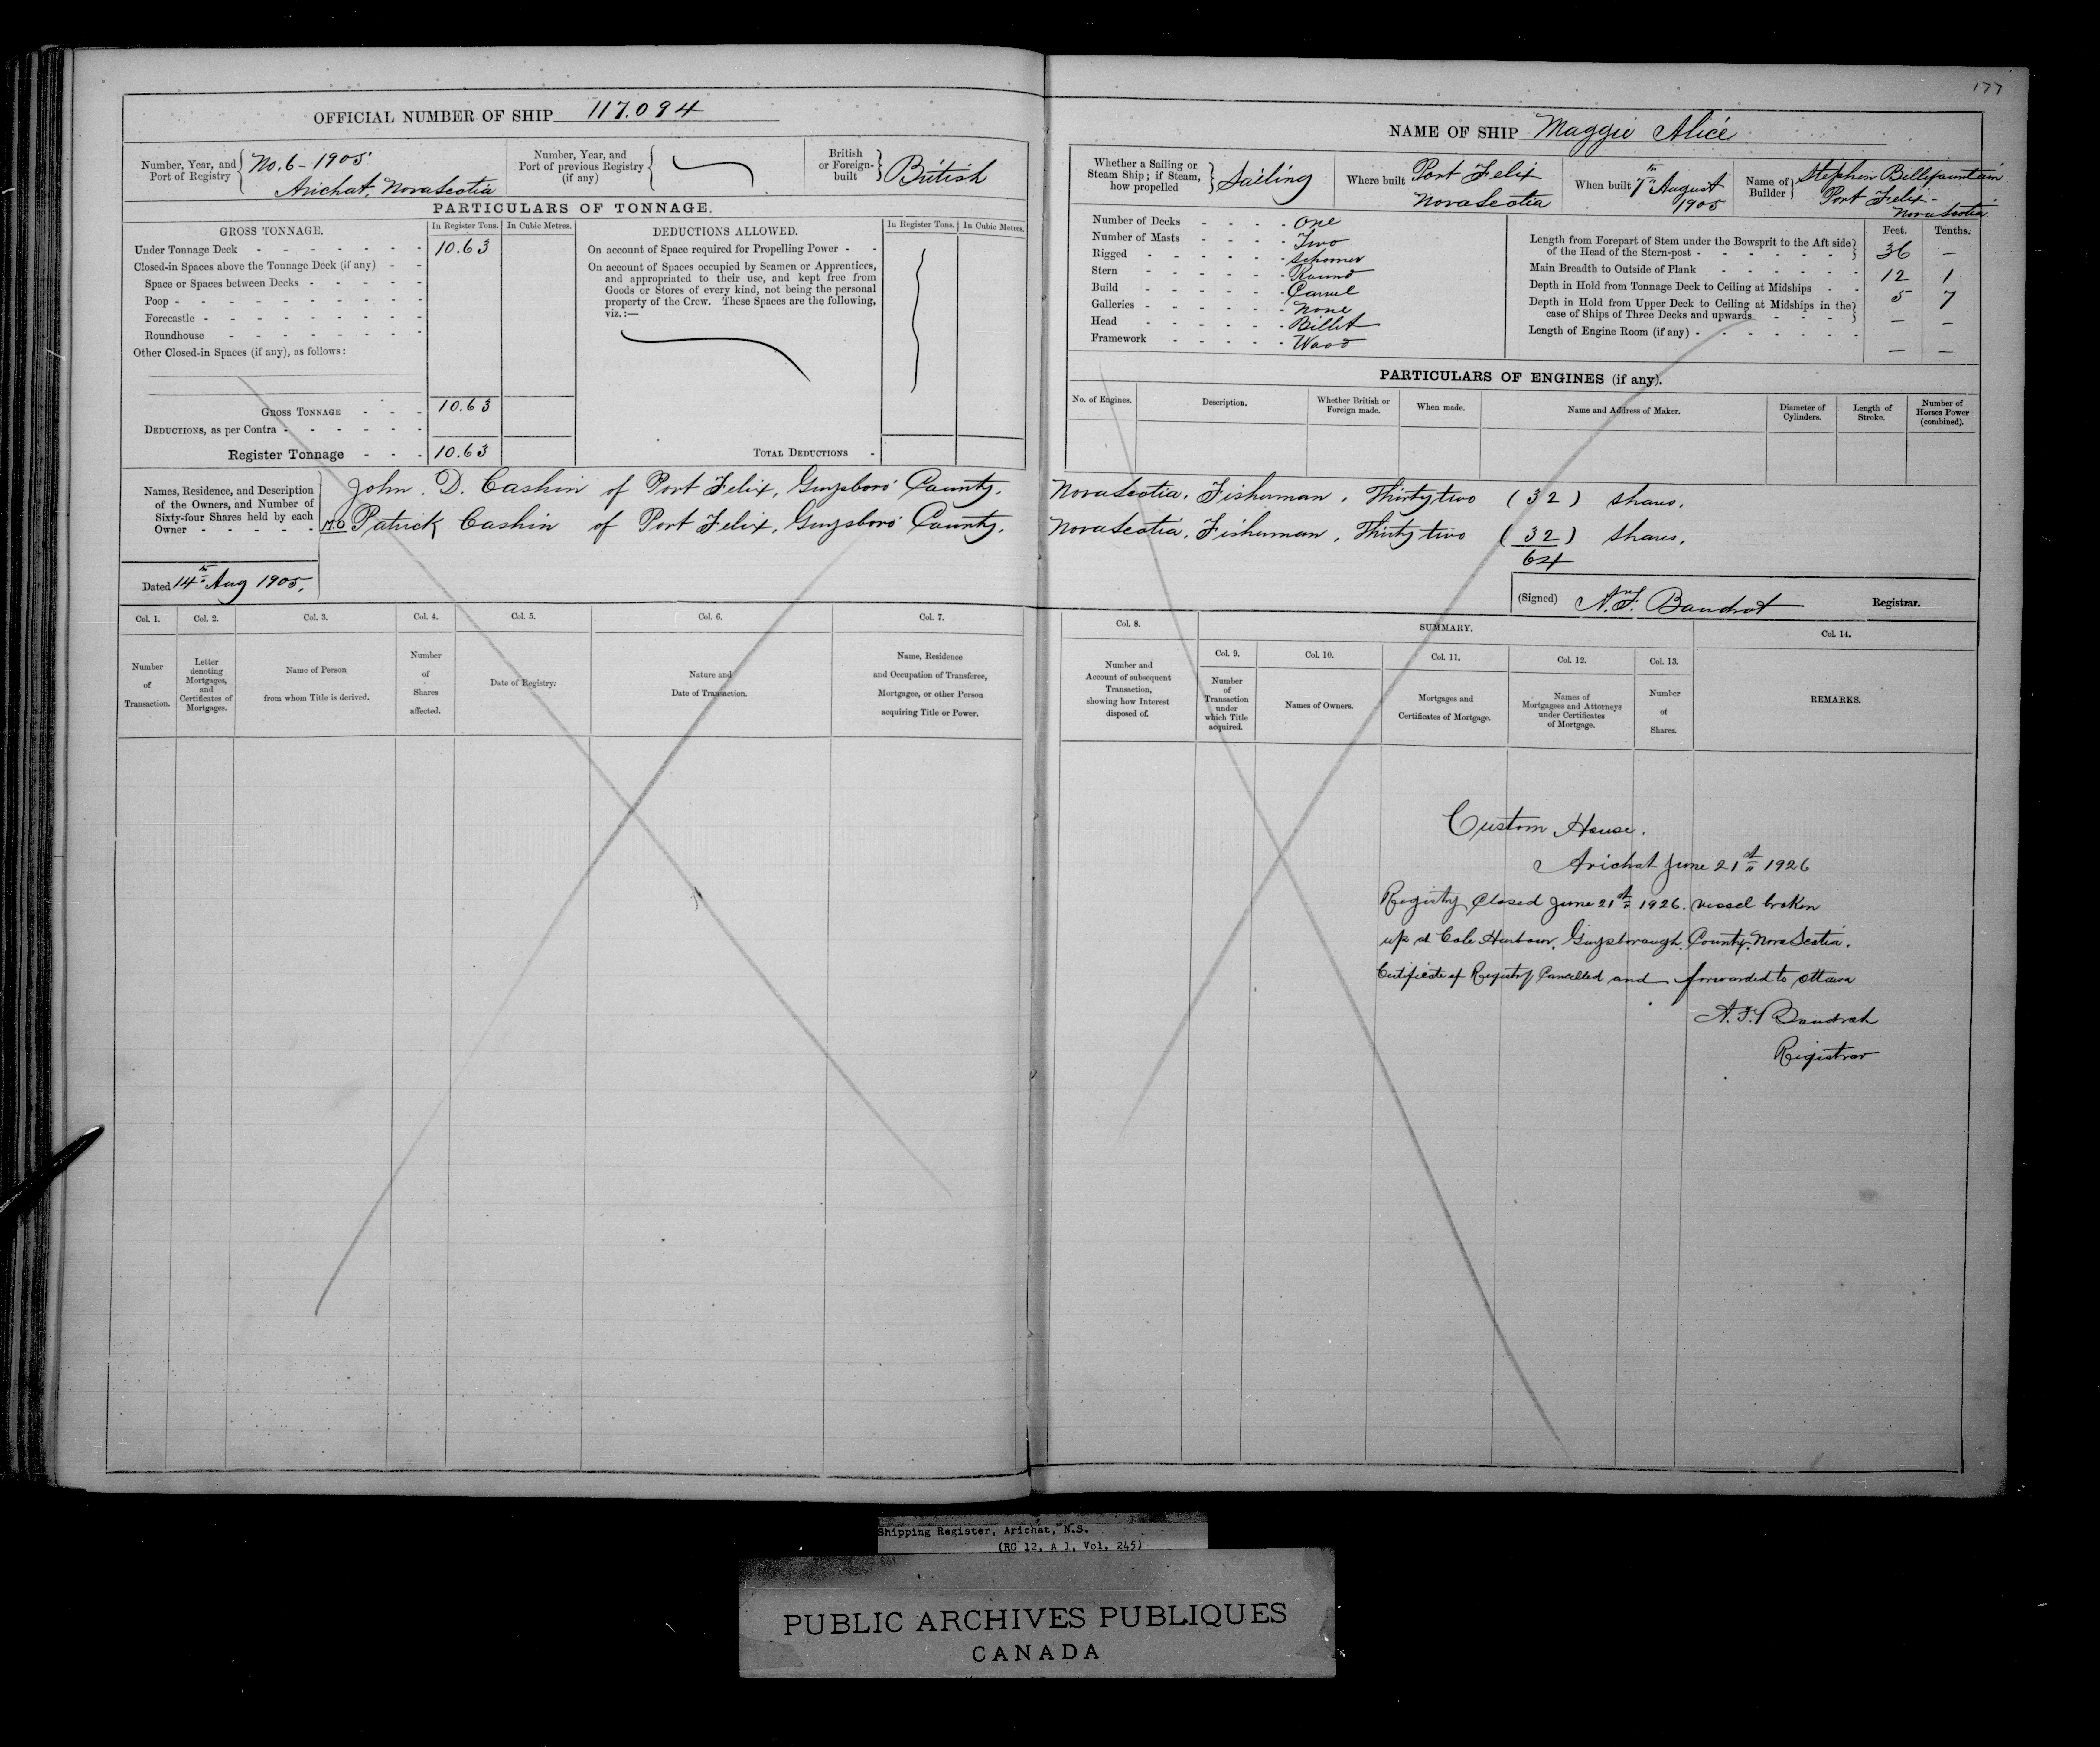 177
OFFICIAL NUMBER OF SHIP 117.094
Number, Year, and Port of Registry { No. 6 - 1905 Arichat, Nova Scotia
Number, Year, and Port of previous Registry (if any) {
British or Foreign-built } British
PARTICULARS OF TONNAGE.
GROSS TONNAGE. In Register Tons. In Cubic Metres. DEDUCTIONS ALLOWED. In Register Tons. In Cubic Metres.
Under Tonnage Deck - - - - - - - 10.63
Closed-in Spaces above the Tonnage Deck (if any) - -
Space or Spaces between Decks - - - - -
Poop - - - - - - - - - -
Forecastle - - - - - - - - -
Roundhouse - - - - - - - -
Other Closed-in Spaces (if any), as follows:
GROSS TONNAGE - - - 10.63
DEDUCTIONS, as per Contra - - - - - -
Register Tonnage - - - 10.63
On account of Space required for Propelling Power - -
On account of Spaces occupied by Seamen or Apprentices,
and appropriated to their use, and kept free from
Goods or Stores of every kind, not being the personal
property of the Crew. These Spaces are the following,
viz.:—
TOTAL DEDUCTIONS -
Names, Residence, and Description
of the Owners, and Number of
Sixty-four Shares held by each
Owner - - - - -
John. D. Cashin of Port Felix, Guysboro' County,
M.O Patrick Cashin of Port Felix, Guysboro' County,
Dated 14th Aug 1905.
Col. 1. Col. 2. Col. 3. Col. 4. Col. 5. Col. 6. Col. 7.
Number of Transaction.
Letter denoting Mortgages, and Certificates of Mortgages.
Name of Person from whom Title is derived.
Number of Shares affected.
Date of Registry.
Nature and Date of Transaction.
Name, Residence and Occupation of Transferee, Mortgagee, or other Person acquiring Title or Power.
NAME OF SHIP Maggie Alice
Whether a Sailing or Steam Ship; if Steam, how propelled } Sailing
Where built Port Felix Nova Scotia
When built 7th August 1905
Name of Builder } Stephen Bellefountain Port Felix - Nova Scotia
Number of Decks - - - - One
Number of Masts - - - - Two
Rigged - - - - - - Schooner
Stern - - - - - - Round
Build - - - - - - Carvel
Galleries - - - - - - None
Head - - - - - - Billet
Framework - - - - - Wood
Feet. Tenths.
Length from Forepart of Stem under the Bowsprit to the Aft side
of the Head of the Stern-post - - - - - - - } 36 —
Main Breadth to Outside of Plank - - - - - - 12 1
Depth in Hold from Tonnage Deck to Ceiling at Midships - - 5 7
Depth in Hold from Upper Deck to Ceiling at Midships in the
case of Ships of Three Decks and upwards - - - - } — —
Length of Engine Room (if any) - - - - - - — —
PARTICULARS OF ENGINES (if any).
No. of Engines. Description. Whether British or Foreign made. When made. Name and Address of Maker. Diameter of Cylinders. Length of Stroke. Number of Horses Power (combined).
Nova Scotia, Fisherman, Thirty two (32) shares.
Nova Scotia, Fisherman, Thirty two (32) shares.
64
(Signed) A. F. Baudrot Registrar.
Col. 8. SUMMARY. Col. 14.
Col. 9. Col. 10. Col. 11. Col. 12. Col. 13.
Number and Account of subsequent Transaction, showing how Interest disposed of.
Number of Transaction under which Title acquired.
Names of Owners.
Mortgages and Certificates of Mortgage.
Names of Mortgagees and Attorneys under Certificates of Mortgage.
Number of Shares.
REMARKS.
Custom House.
Arichat June 21st 1926
Registry Closed June 21st 1926. vessel broken
up at Cole Harbour, Guysborough County Nova Scotia.
Certificate of Registry Cancelled and forwarded to Ottawa
A. F. Baudrot
Registrar
Shipping Register, Arichat, N.S.
(RG 12, A 1, Vol. 245)
PUBLIC ARCHIVES PUBLIQUES
CANADA